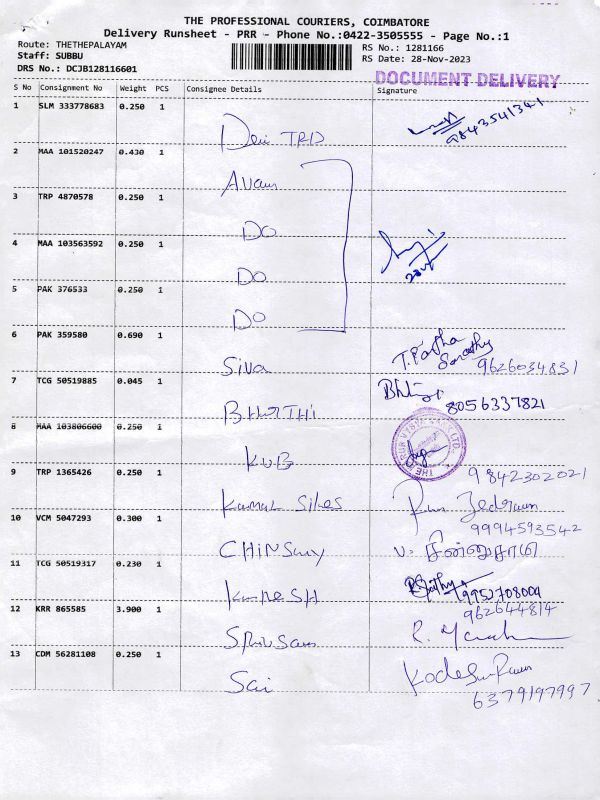 THE PROFESSIONAL COURIERS, COIMBATORE
Delivery Runsheet - PRR - Phone No.:0422-3505555 - Page No.:1
Route: THETHEPALAYAM RS No.: 1281166
Staff: SUBBU RS Date: 28-Nov-2023
DRS No.: DCJB128116601
DOCUMENT DELIVERY
S No Consignment No Weight PCS Consignee Details Signature
1 SLM 333778683 0.250 1
Devi TRD 9843541341
2 MAA 101520247 0.430 1
3 TRP 4870578 0.250 1
DO
4 MAA 103563592 0.250 1
DO
5 PAK 376533 0.250 1
DO
6 PAK 359580 0.690 1
Siva T. Partha Sarathy 9626034831
7 TCG 50519885 0.045 1
BHARTHI 8056337821
8 MAA 103806600 0.250 1
KVB
9 TRP 1365426 0.250 1 9842302021
Kamal Silks
9994593542
10 VCM 5047293 0.300 1
CHINSAMY சின்னுசாமி
11 TCG 50519317 0.230 1
9952708009
962644814
12 KRR 865585 3.900 1
13 CDM 56281108 0.250 1
Sai
6379197997